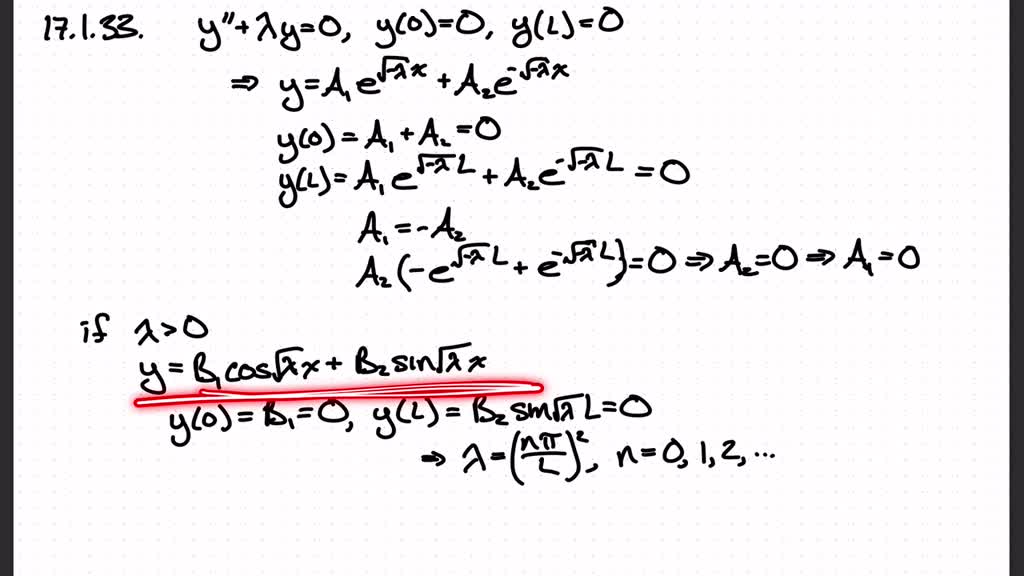 17.1.33. y″+λy=0, y(0)=0, y(L)=0
⇒ y=A₁e^{√-λx}+A₂e^{-√-λx}
y(0)=A₁+A₂=0
y(L)=A₁e^{√-λL}+A₂e^{-√-λL}=0
A₁=-A₂
A₂(-e^{√-λL}+e^{-√-λL})=0⇒A₂=0⇒A₁=0
if λ>0
y=B₁cos√λx+B₂sin√λx
y(0)=B₁=0, y(L)=B₂sin√λL=0
⇒ λ=(nπ/L)², n=0,1,2,...